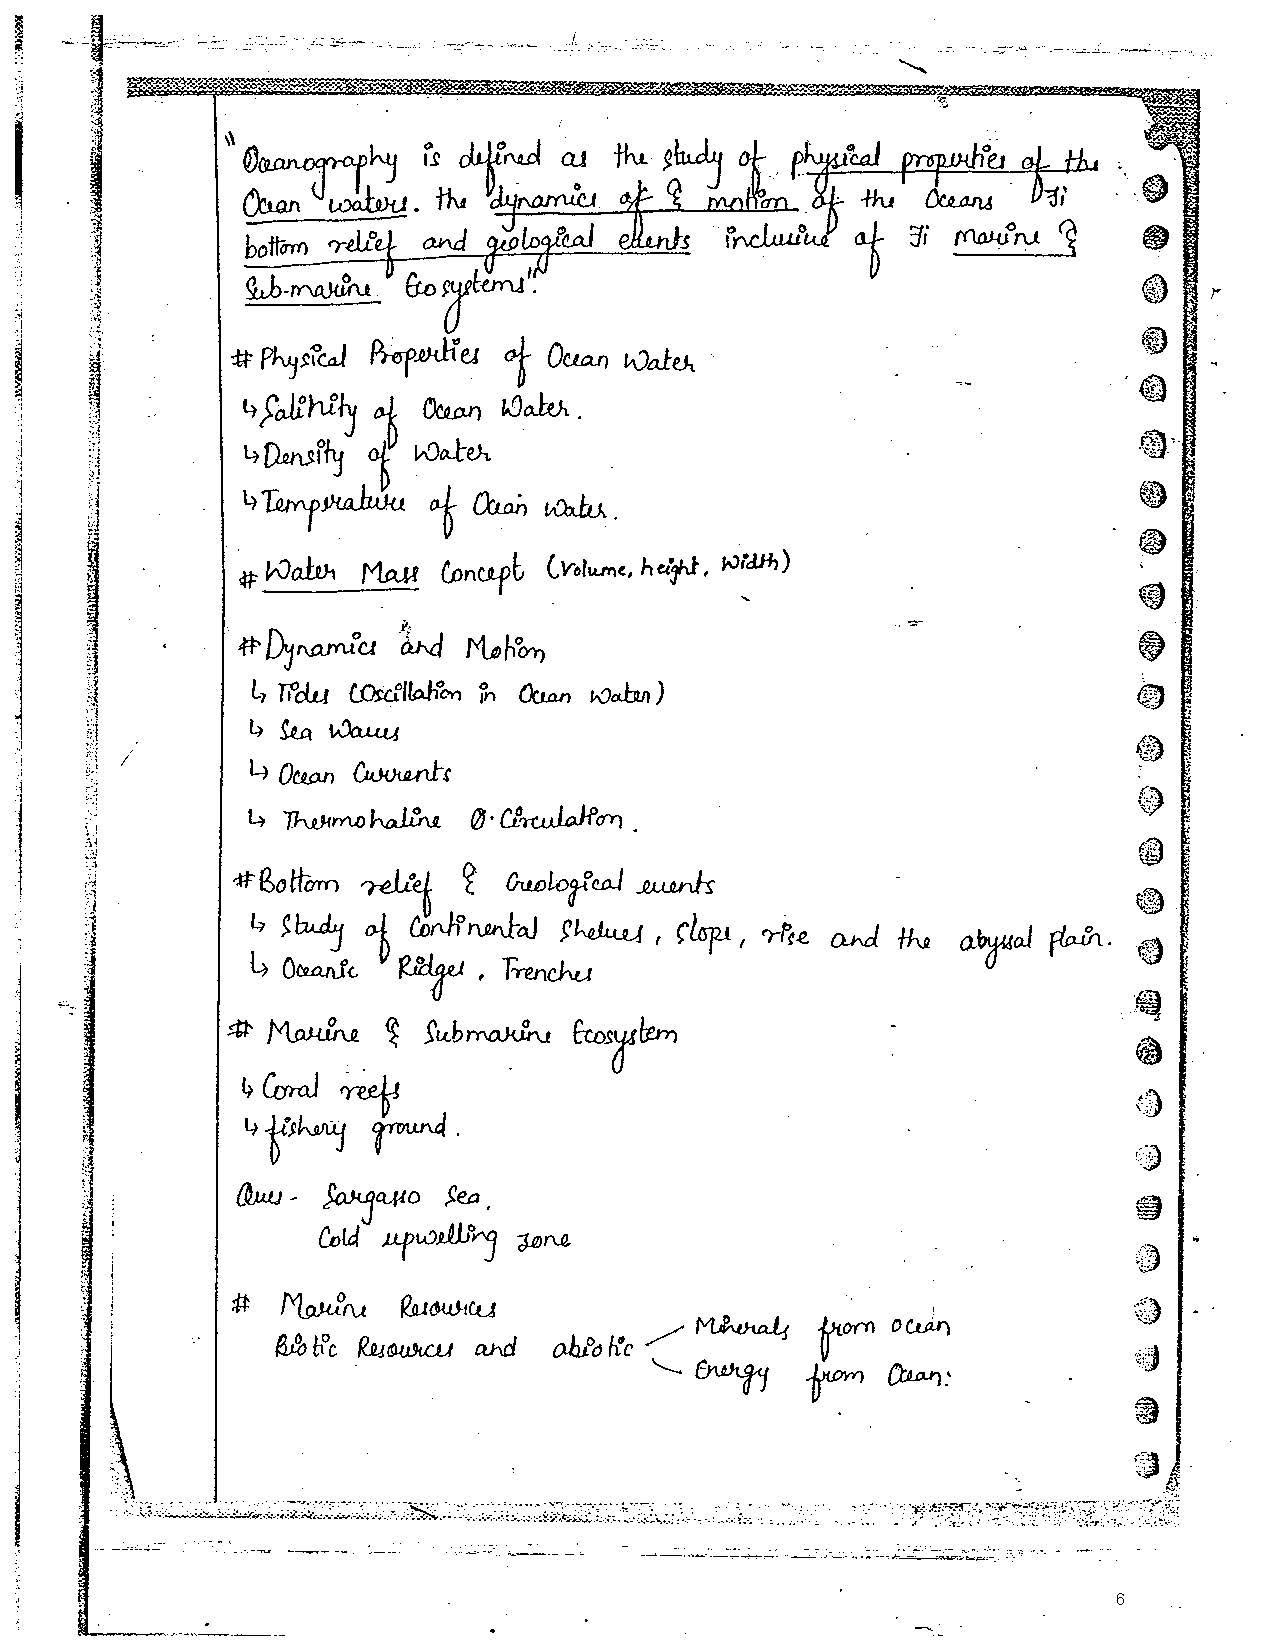 "Oceanography is defined as the study of physical properties of the
Ocean waters. the dynamics of & motion of the Oceans
bottom relief and geological events inclusive of marine &
Sub-marine Ecosystems".
# Physical Properties of Ocean Water
↳ Salinity of Ocean Water.
↳ Density of Water
↳ Temperature of Ocean water.
# Water Mass Concept (Volume, height, width)
# Dynamics and Motion
↳ Tides (Oscillation in Ocean Water)
↳ Sea Waves
↳ Ocean Currents
↳ Thermohaline O. Circulation.
# Bottom relief & Geological events
↳ Study of Continental Shelves, Slope, rise and the abyssal plain.
↳ Oceanic Ridges, Trenches
# Marine & Submarine Ecosystem
↳ Coral reefs
↳ fishery ground.
Ques - Sargasso Sea.
Cold upwelling zone
# Marine Resources
Biotic Resources and abiotic
Minerals from ocean
Energy from Ocean.
6